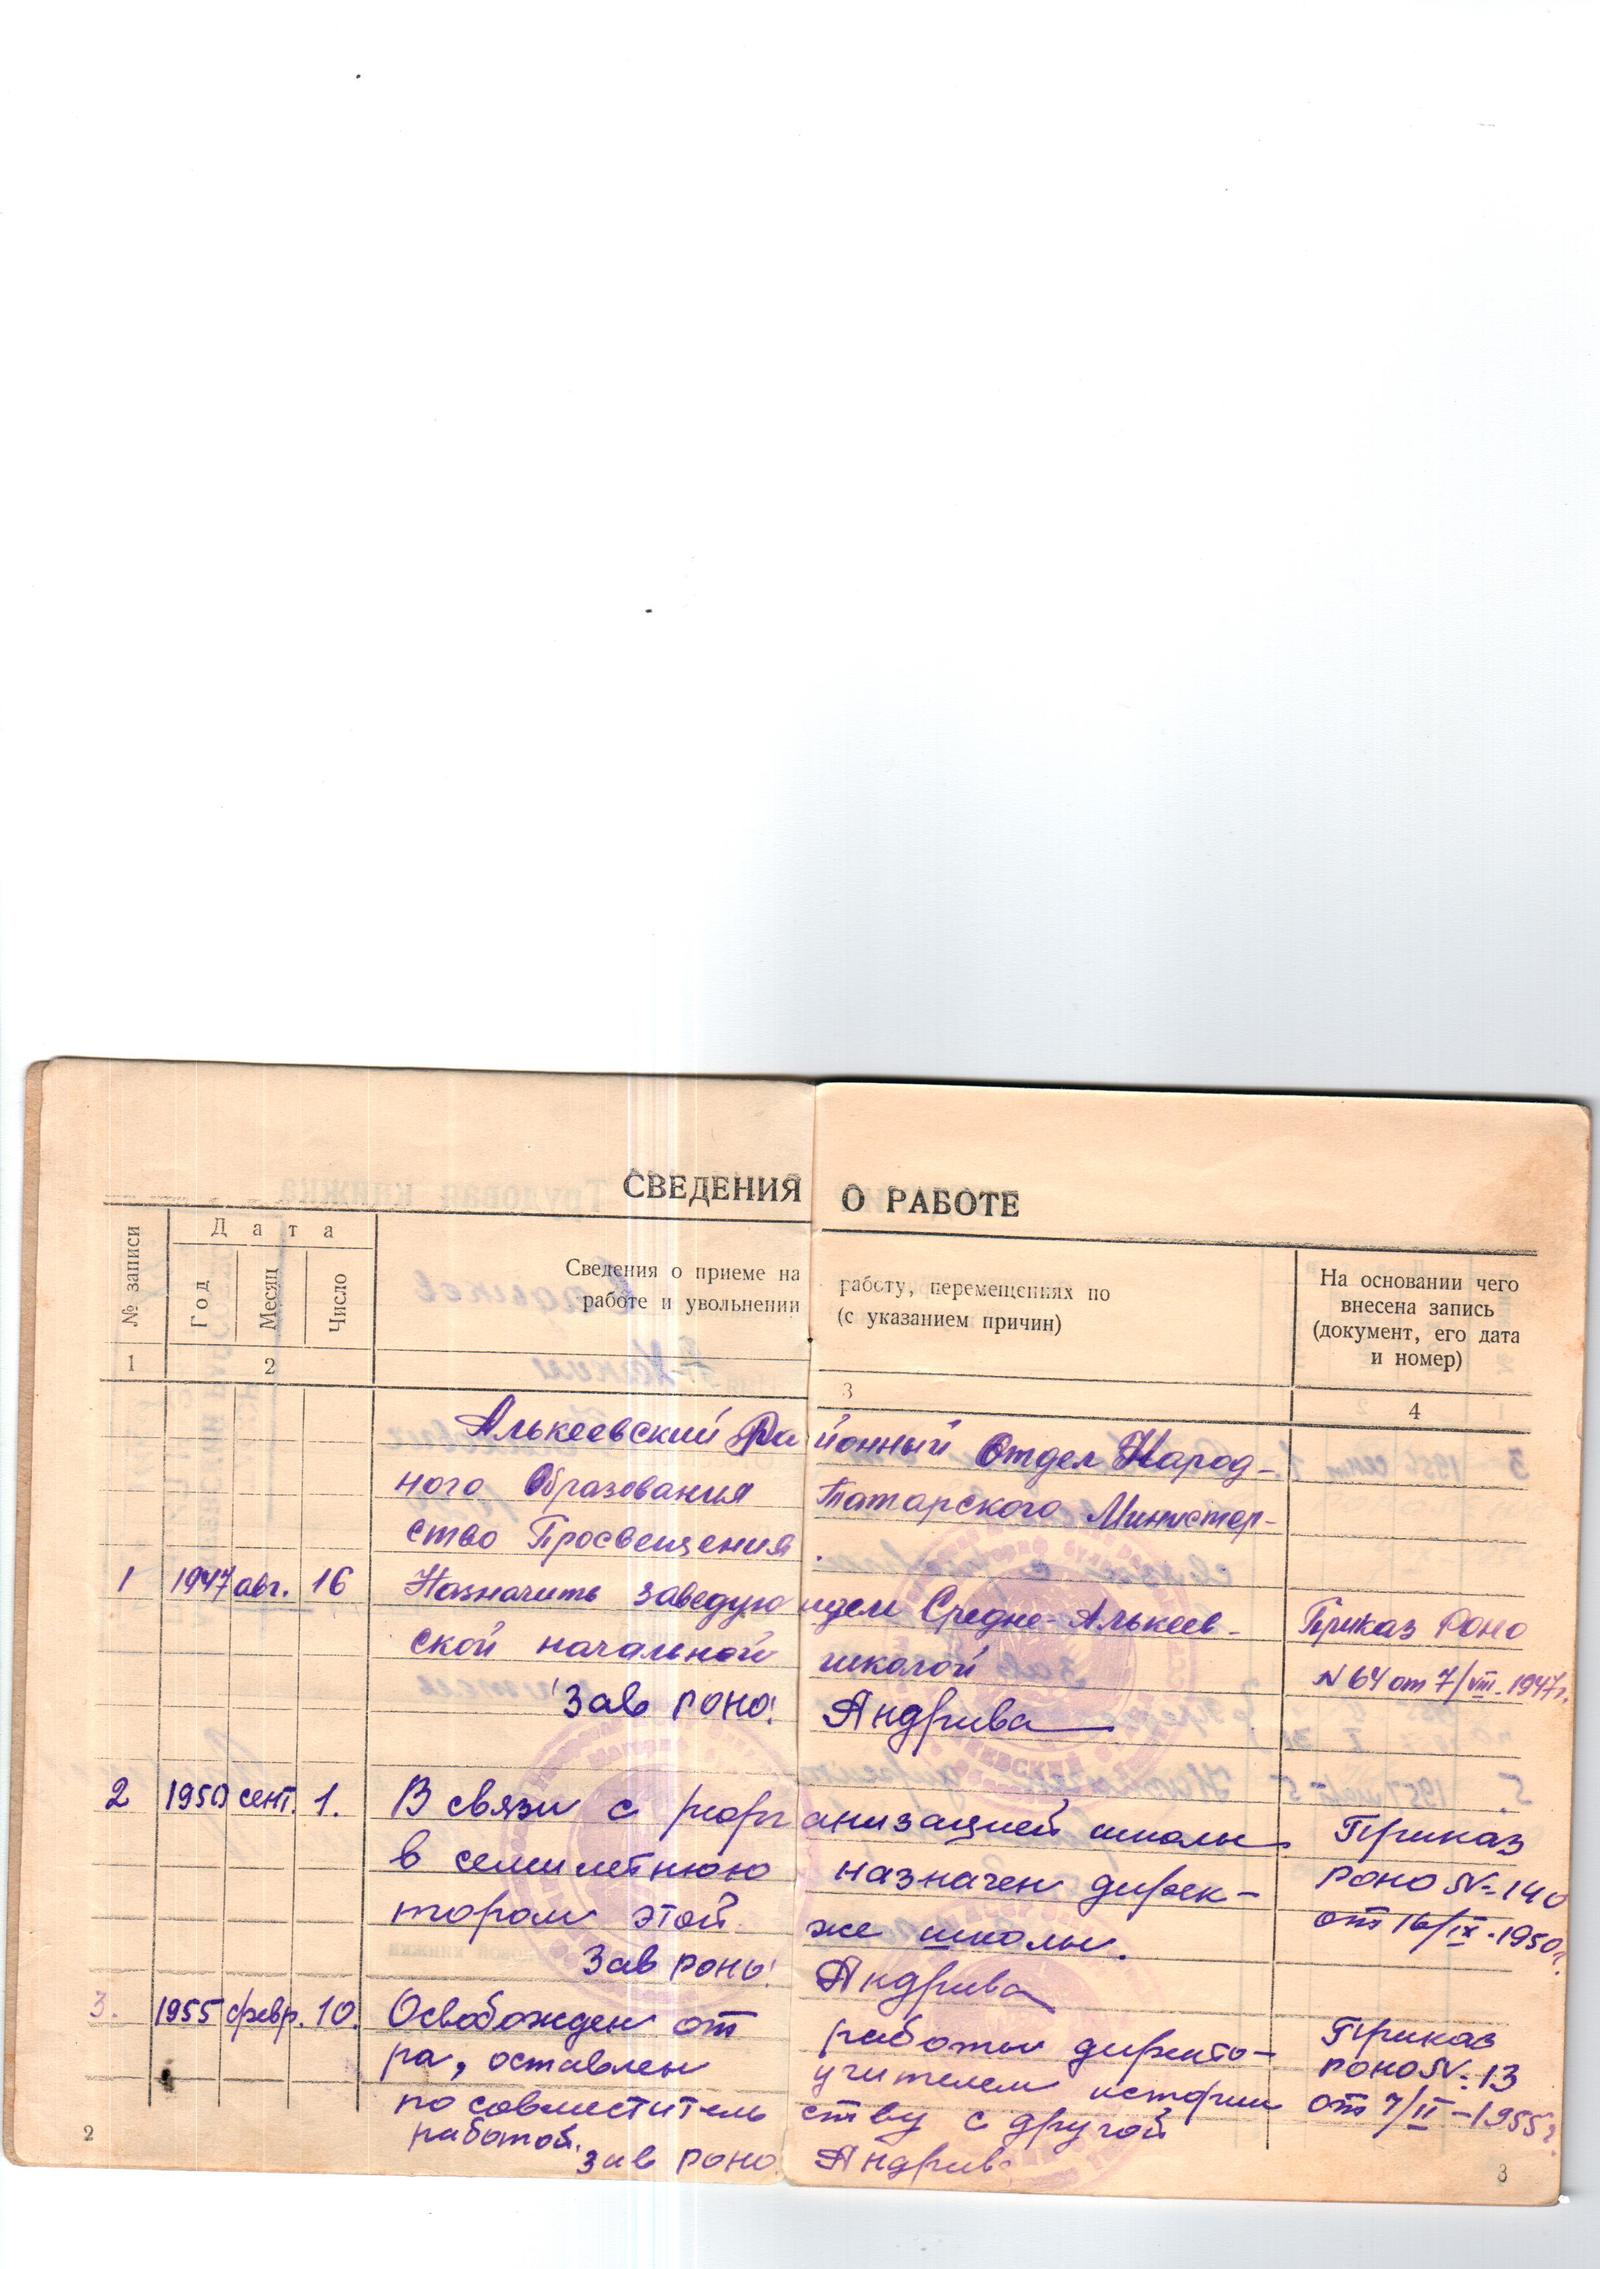 СВЕДЕНИЯ О РАБОТЕ
№ записи
Дата
Год
Месяц
Число
Сведения о приеме на работу, перемещениях по
работе и увольнении (с указанием причин)
На основании чего
внесена запись
(документ, его дата
и номер)
1 2 3 4
Алькеевский Районный Отдел Народ-
ного Образования Татарского Министер-
ство Просвещения.
1 1947 авг. 16 Назначить заведующем Средне-Алькеев- Приказ Роно
ской начальной школой N 64 от 7/VIII-1947г.
Зав роно: Андрива
2 1950 сент. 1. В связи с реорганизацией школы Приказ
в семилетнюю назначен дирек- РОНО №-140
тором этой же школы. от 16/IX-1950г.
Зав роно: Андрива
3. 1955 февр. 10. Освобожден от работы директо- Приказ
ра, оставлен учителем истории РОНО №:13
по совместительству с другой от 7/II-1955г.
работой.
Зав роно Андрив
2 3